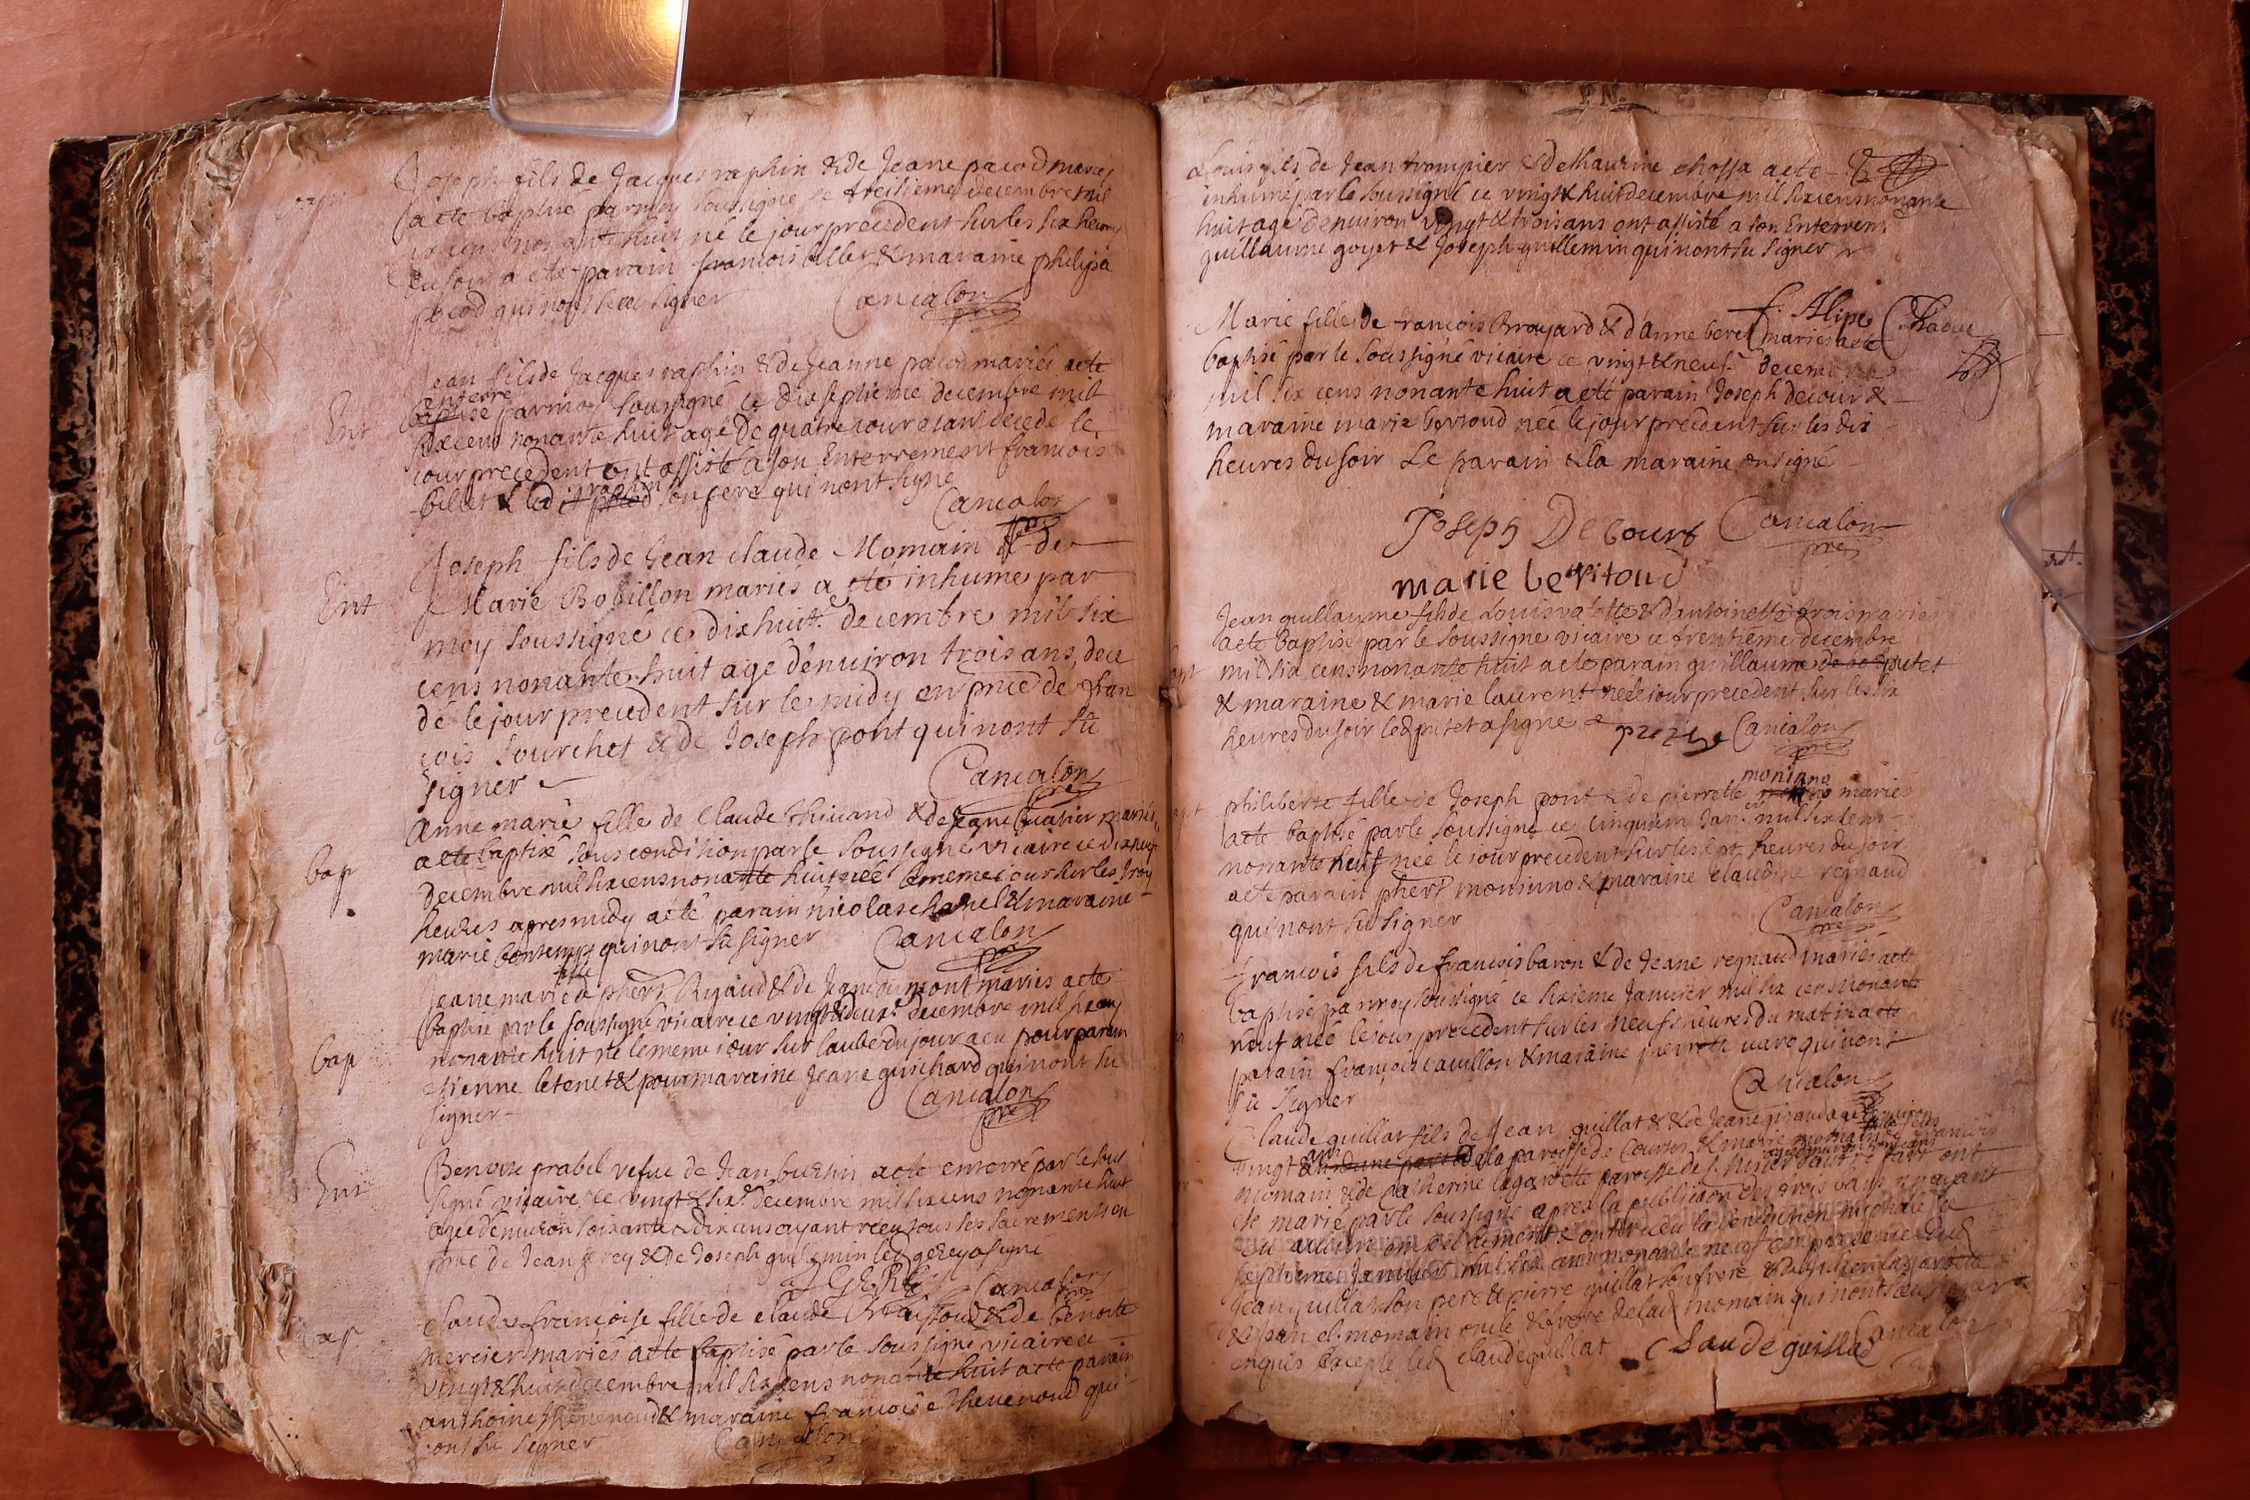 Joseph fils de Jacques raphin & de Jeane pacod maries
a ete baptisé par moy soussigné le treisieme decembre mil
six cens nonante huit né le jour precedent sur les six heures
du soir a ete parain francois billet & maraine philipa
pacod qui nont sceu signer Cancalon
pre
Jean fils de Jacques raphin & de Jeanne pacod mariés a ete
enterré
Ent baptisé par moy soussigné ce dixseptieme decembre mil
six cens nonante huit agé de quatre jours etant decede le
jour precedent ont assisté a son Enterrement francois
billet & led raphin son pere qui nont signé
Cancalon
pre
Joseph fils de Jean claude Momain & de
Ent Marie Bobillon mariés a eté inhumé par
moy soussigné ce dixhuit decembre mil six
cens nonante huit agé d'enuiron trois ans, dece
dé le jour precedent sur le midy en pnce de fran
cois Sourchet & de Joseph pont qui nont sû
signer Cancalon
pre
Anne marie fille de Claude thiuand & de Jeane Cuatier mariés
bap a ete baptisé sous condition par le soussigné vicaire ce dixneuf
decembre mil six cens nonante huit née le meme jour sur les troy
heures apres midy a été parain nicolas chanel & maraine
marie bontemps qui nont sû signer Cancalon
pre
fille
Jeane marie de phert Rigaud & de Jeane dumont mariés a ete
baptisé par le soussigné vicaire ce vingt & deux decembre mil six cens
bap nonante huit né le meme jour sur laube du jour a eu pour parain
etienne letenet & pour maraine Jeane guichard qui nont sû
signer Cancalon
pre
Benoite prabel vefue de Jean bursin a eté enterré par le sous
Ent signé vicaire ce vingt & six decembre mil six cens nonante huit
agée d'enuiron soixante & dix ans ayant receu tous les sacremens en
pnce de Jean gerey & de Joseph guillemin led gerey a signé
J GERey Cancalon
pre
Claude francoise fille de claude & de benoite
bap mercier mariés a eté baptisé par le soussigné vicaire ce
vingt & huit decembre mil six cens nonante huit a ete parain
anthoine theuenoud & maraine francoise theuenoud qui
ont sû signer Cancalon
Louis fils de Jean trompier & de thaurine chossa a ete
inhumé par le soussigné ce vingt & huit decembre mil six cens nonante
huit agé denuiron vingt & trois ans ont assisté a son Enterremt
guillaume goyet & Joseph guillemin qui nont su signer
f. Alipe
Marie fille de francois Brouyard & d'anne beret mariés a ete
baptisé par le soussigné vicaire ce vingt & neuf decembre
mil six cens nonante huit a eté parain Joseph decour &
maraine marie berroud née le jour precedent sur les dix
heures du soir Le parain & la maraine on signé
Joseph Decourt Cancalon
pre
marie beritoud
Jean guillaume fils de Louis valette & dantoinette frois mariés
a eté baptisé par le soussigné vicaire ce trentieme decembre
mil six cens nonante huit a ete parain guillaume putet
& maraine & marie laurent né le jour precedent sur les six
heures du soir led putet a signé Cancalon
pre
moniano
philiberte fille de Joseph pont & de pierrette mariés
a eté baptisé par le soussigné ce cinquiem Janr mil six cens
nonante neuf née le jour precedent sur les sept heures du soir
a ete parain phert moninno & maraine claudine regnaud
qui nont sû signer Cancalon
pre
francois fils de francois baron & de Jeane regnaud mariés a ete
baptisé par moy soussigné ce sixieme Januier mil six cens nonante
neuf née le jour precedent sur les neufs heures du matin a ete
parain francois cauillon & maraine pierrette uare qui nont
sû signer Cancalon
Claude guillat fils de Jean guillat & de Jeane rigaud agé denuiron
vingt & un ans de la paroisse de & marie momain fille de francois
momain & de Catherine lagardette paroisse de dautre part ont
eté mariés par le soussigné apres la publication des trois bans nayant
eu aucun empechement & ont receu la benediction nuptiale le
septieme Januier mil six cens nonante neuf en presence dud
Jean guillat son pere & pierre guillat son frere
& Jean cl. momain oncle & frere de lad momain qui nont sceu signer
enquis Excepté led claude guillat Claude guillad Cancalon